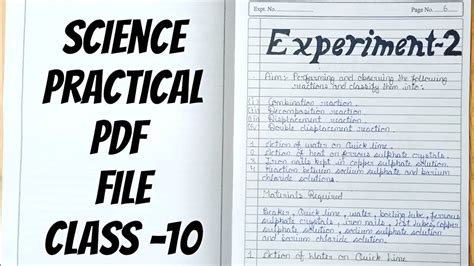 SCIENCE
PRACTICAL
PDF
FILE
CLASS -10
Expt. No.
Page No. 6
Experiment-2
Aim: Performing and observing the following
reactions and classify them into:
(i) Combination reaction.
(ii) Decomposition reaction.
(iii) Displacement reaction.
(iv) Double displacement reaction.
1 Action of water on Quick lime.
2 Action of heat on ferrous sulphate crystals.
3 Iron nails kept in copper sulphate solution.
4 Reaction between sodium sulphate and barium
chloride solutions.
Materials Required
Beaker, Quick lime, water, boiling tube, ferrous
sulphate crystals, iron nails, test tubes, copper
sulphate solution, sodium sulphate solution
and barium chloride solution.
1 Action of Water on Quick Lime